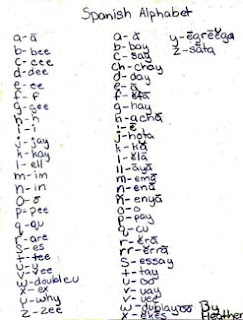 Spanish Alphabet
a-ā
b-bee
c-cee
d-dee
e-ee
f-f
g-gee
h-h
i-i
j-jay
k-kay
l-ell
m-im
n-in
o-o
p-pee
q-qu
r-are
s-es
t-tee
u-u
v-vee
w-doubleu
x-ex
y-why
z-zee
a-ă
b-bay
c-say
ch-chay
d-day
e-ā
g-hay
h-acha
i-ē
j-hota
k-ka
l-ela
ll-aya
m-ema
n-ena
ñ-enya
o-o
p-pay
q-cu
r-era
rr-erra
s-essay
t-tay
u-oo
v-vay
x-ekes
y-egreega
z-sata
By
Heather